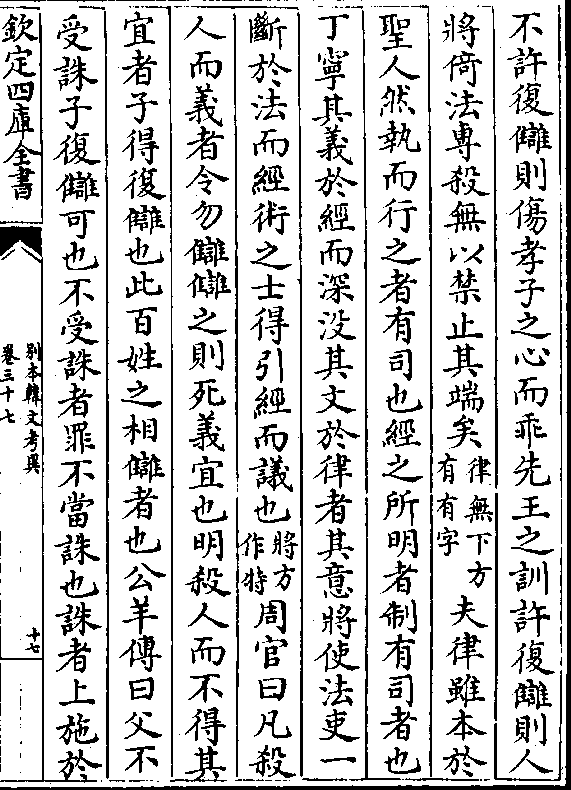 不許復讎則傷孝子之心而乖先王之訓許復讎則人
將倚法専殺無以禁止其端矣律無下方有有字夫律雖本於
聖人然執而行之者有司也經之所明者制有司者也
丁寧其義於經而深没其文於律者其意將使法吏一
斷於法而經術之士得引經而議也將方作特周官曰凡殺
人而義者令勿讎讎之則死義宜也明殺人而不得其
宜者子得復讎也此百姓之相讎者也公羊傳曰父不
受誅子復讎可也不受誅者罪不當誅也誅者上施於
欽定四庫全書
別本韓文考異
卷三十七
十七